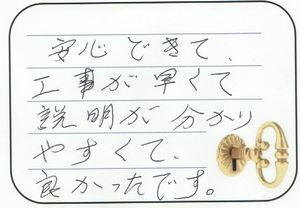 安心できて、
工事が早くて
説明が分かり
やすくて、
良かったです。